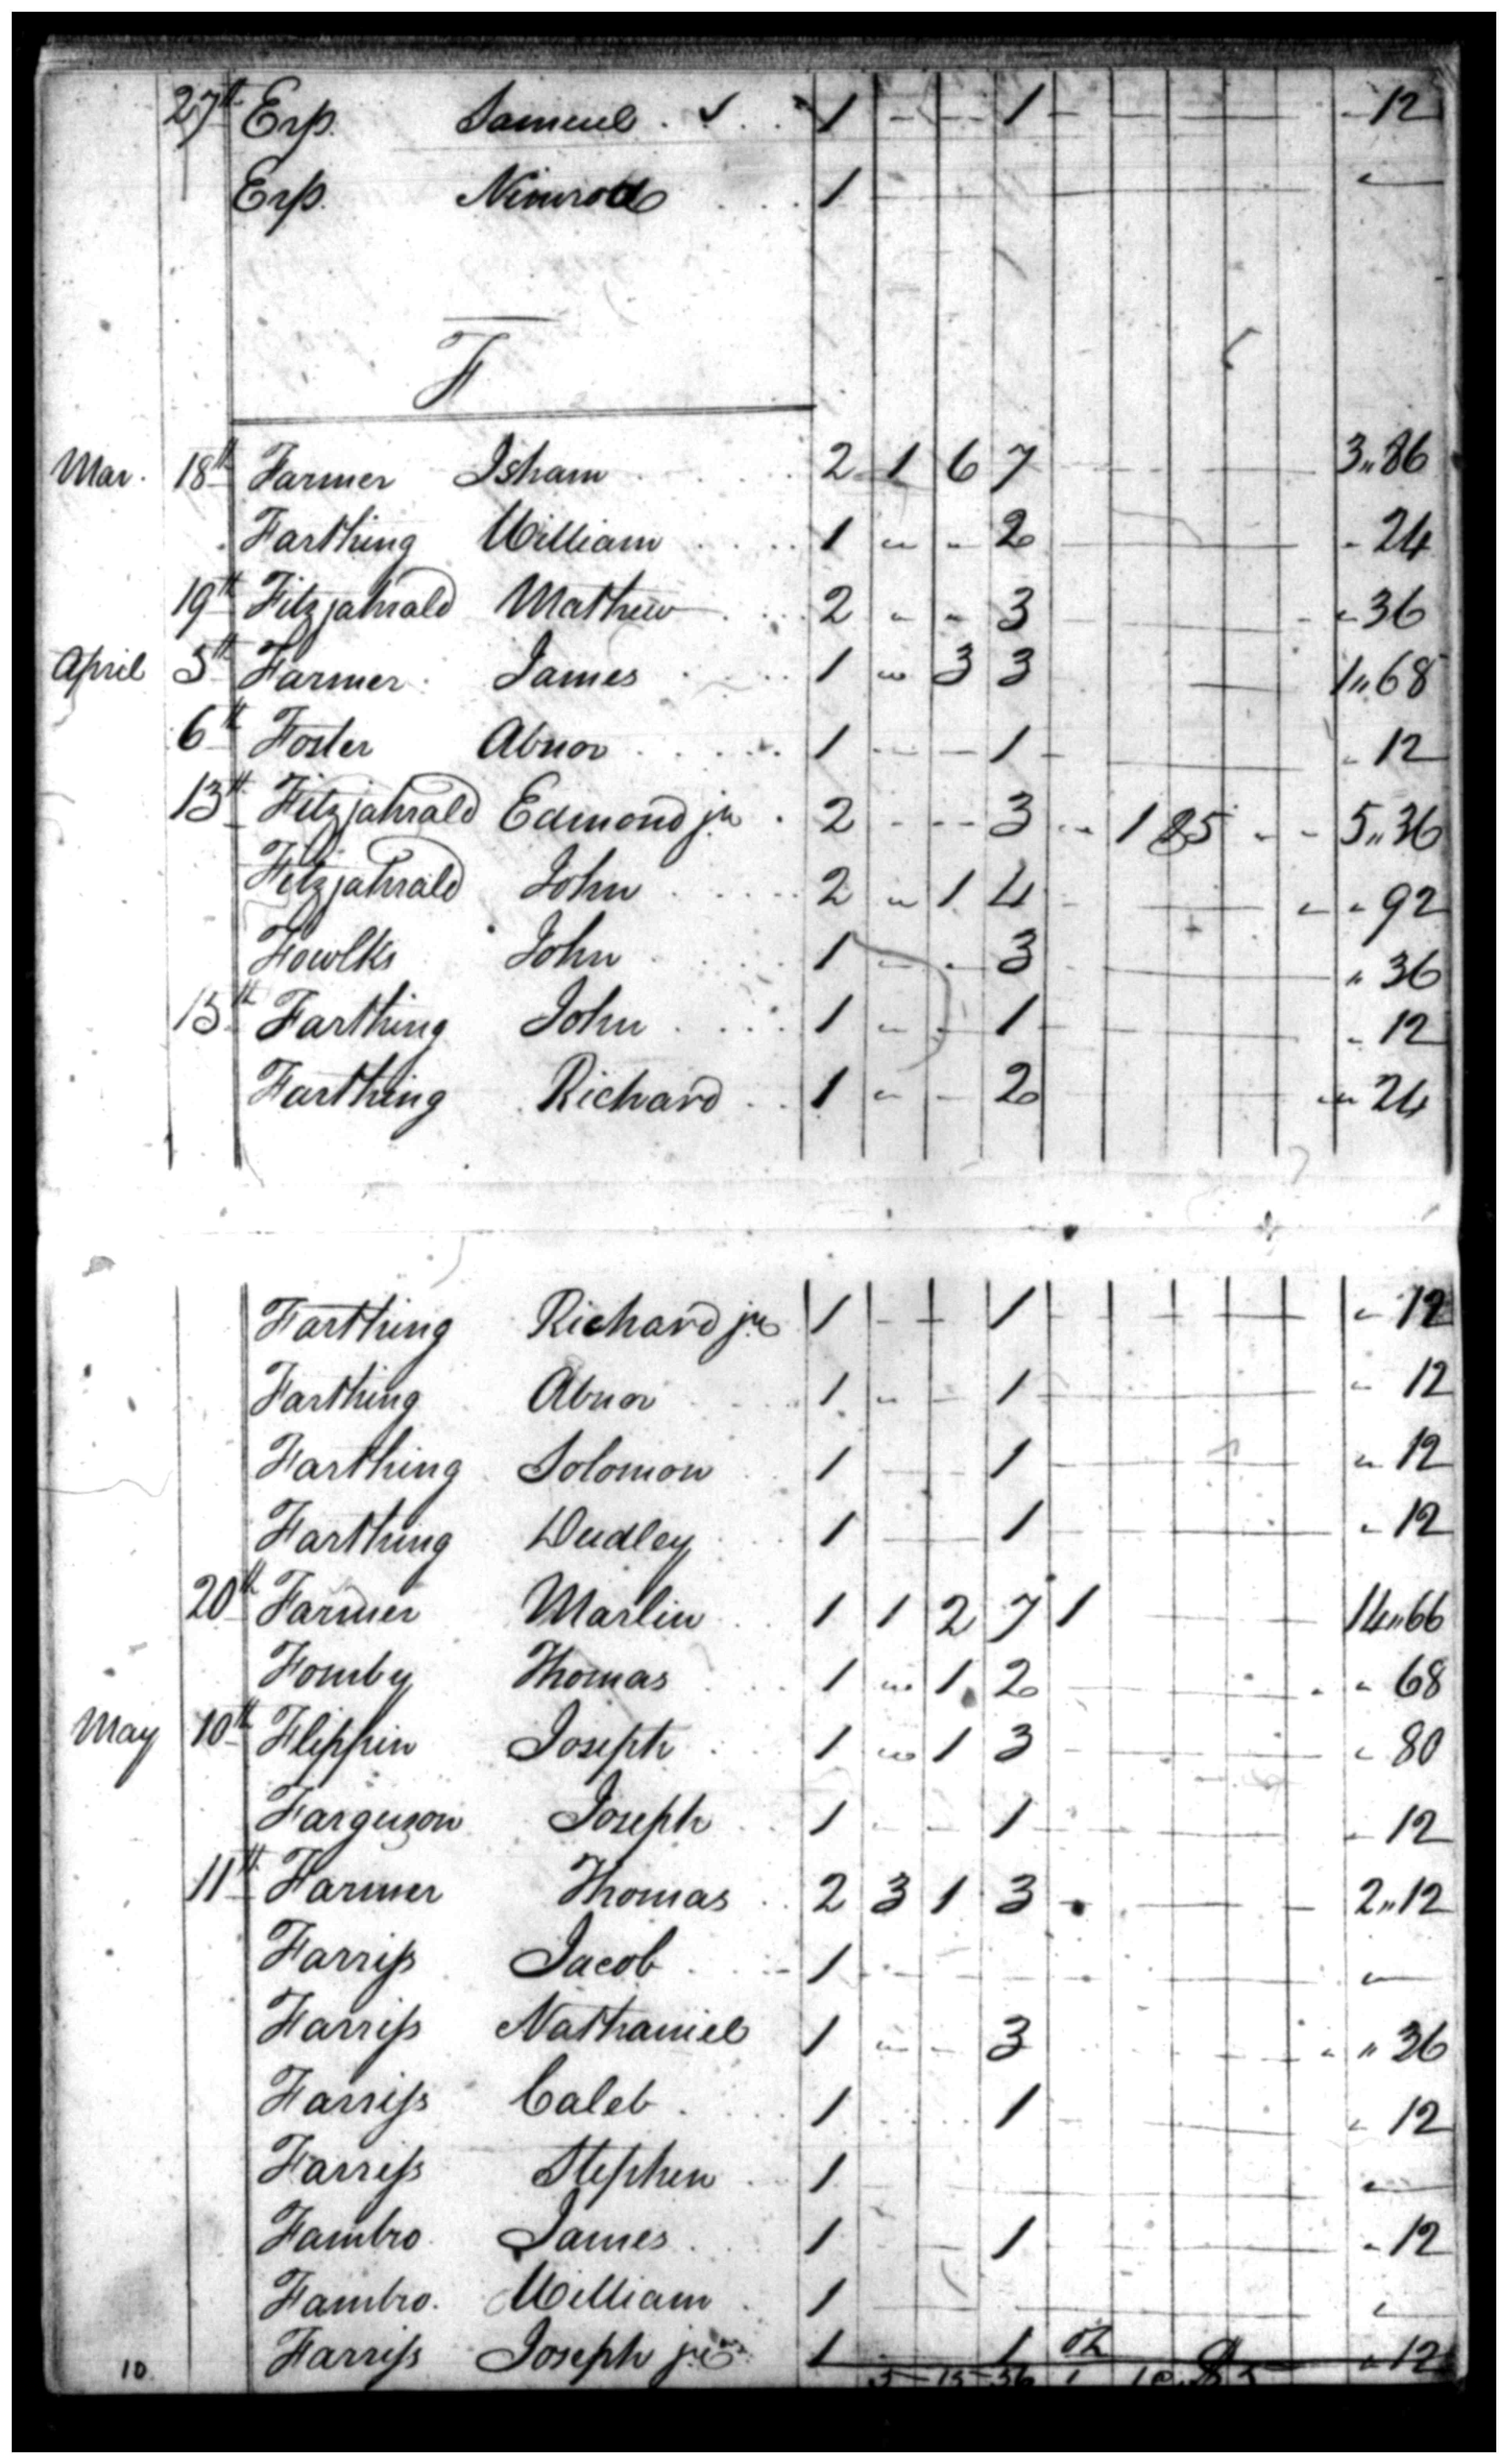 27th Erp. Samuel 1 - - 1 - 12
Erp. Nimrod 1
F
Mar. 18th Farmer Isham 2 1 6 7 3,,86
Farthing William 1 - - 2 - 24
19th Fitzjahrald Mathew 2 - - 3 - 36
April 5th Farmer James 1 - 3 3 1,,68
6th Foster Abnor 1 - - 1 - 12
13th Fitzjahrald Edmond jr 2 - - 3 - 1 85 - - 5,,36
Fitzjahrald John 2 - 1 4 - - 92
Fowlks John 1 - - 3 " 36
15th Farthing John 1 - - 1 - 12
Farthing Richard 1 - - 2 - 24
Farthing Richard jr 1 - - 1 - 12
Farthing Abnor 1 - - 1 - 12
Farthing Solomon 1 1 - 12
Farthing Dudley 1 1 - 12
20th Farmer Marlin 1 1 2 7 1 14,,66
Fomby Thomas 1 - 1 2 - 68
May 10th Flippin Joseph 1 - 1 3 - 80
Farguson Joseph 1 - - 1 - 12
11th Farmer Thomas 2 3 1 3 2,,12
Farriſs Jacob 1
Farriſs Nathaniel 1 - - 3 " 36
Farriſs Caleb 1 1 - 12
Farriſs Stephen 1
Fambro James 1 1 - 12
Fambro. William 1
Farriſs Joseph jr 1 1 - 12
10